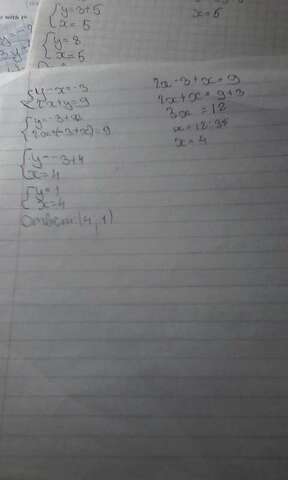 y=3+5
x=5
x=5
y=8
x=5
y-x=-3
2x+y=9
y=-3+x
2x+(-3+x)=9
y=-3+4
x=4
y=1
x=4
Ответ: (4,1)
2x-3+x=9
2x+x=9+3
3x=12
x=4